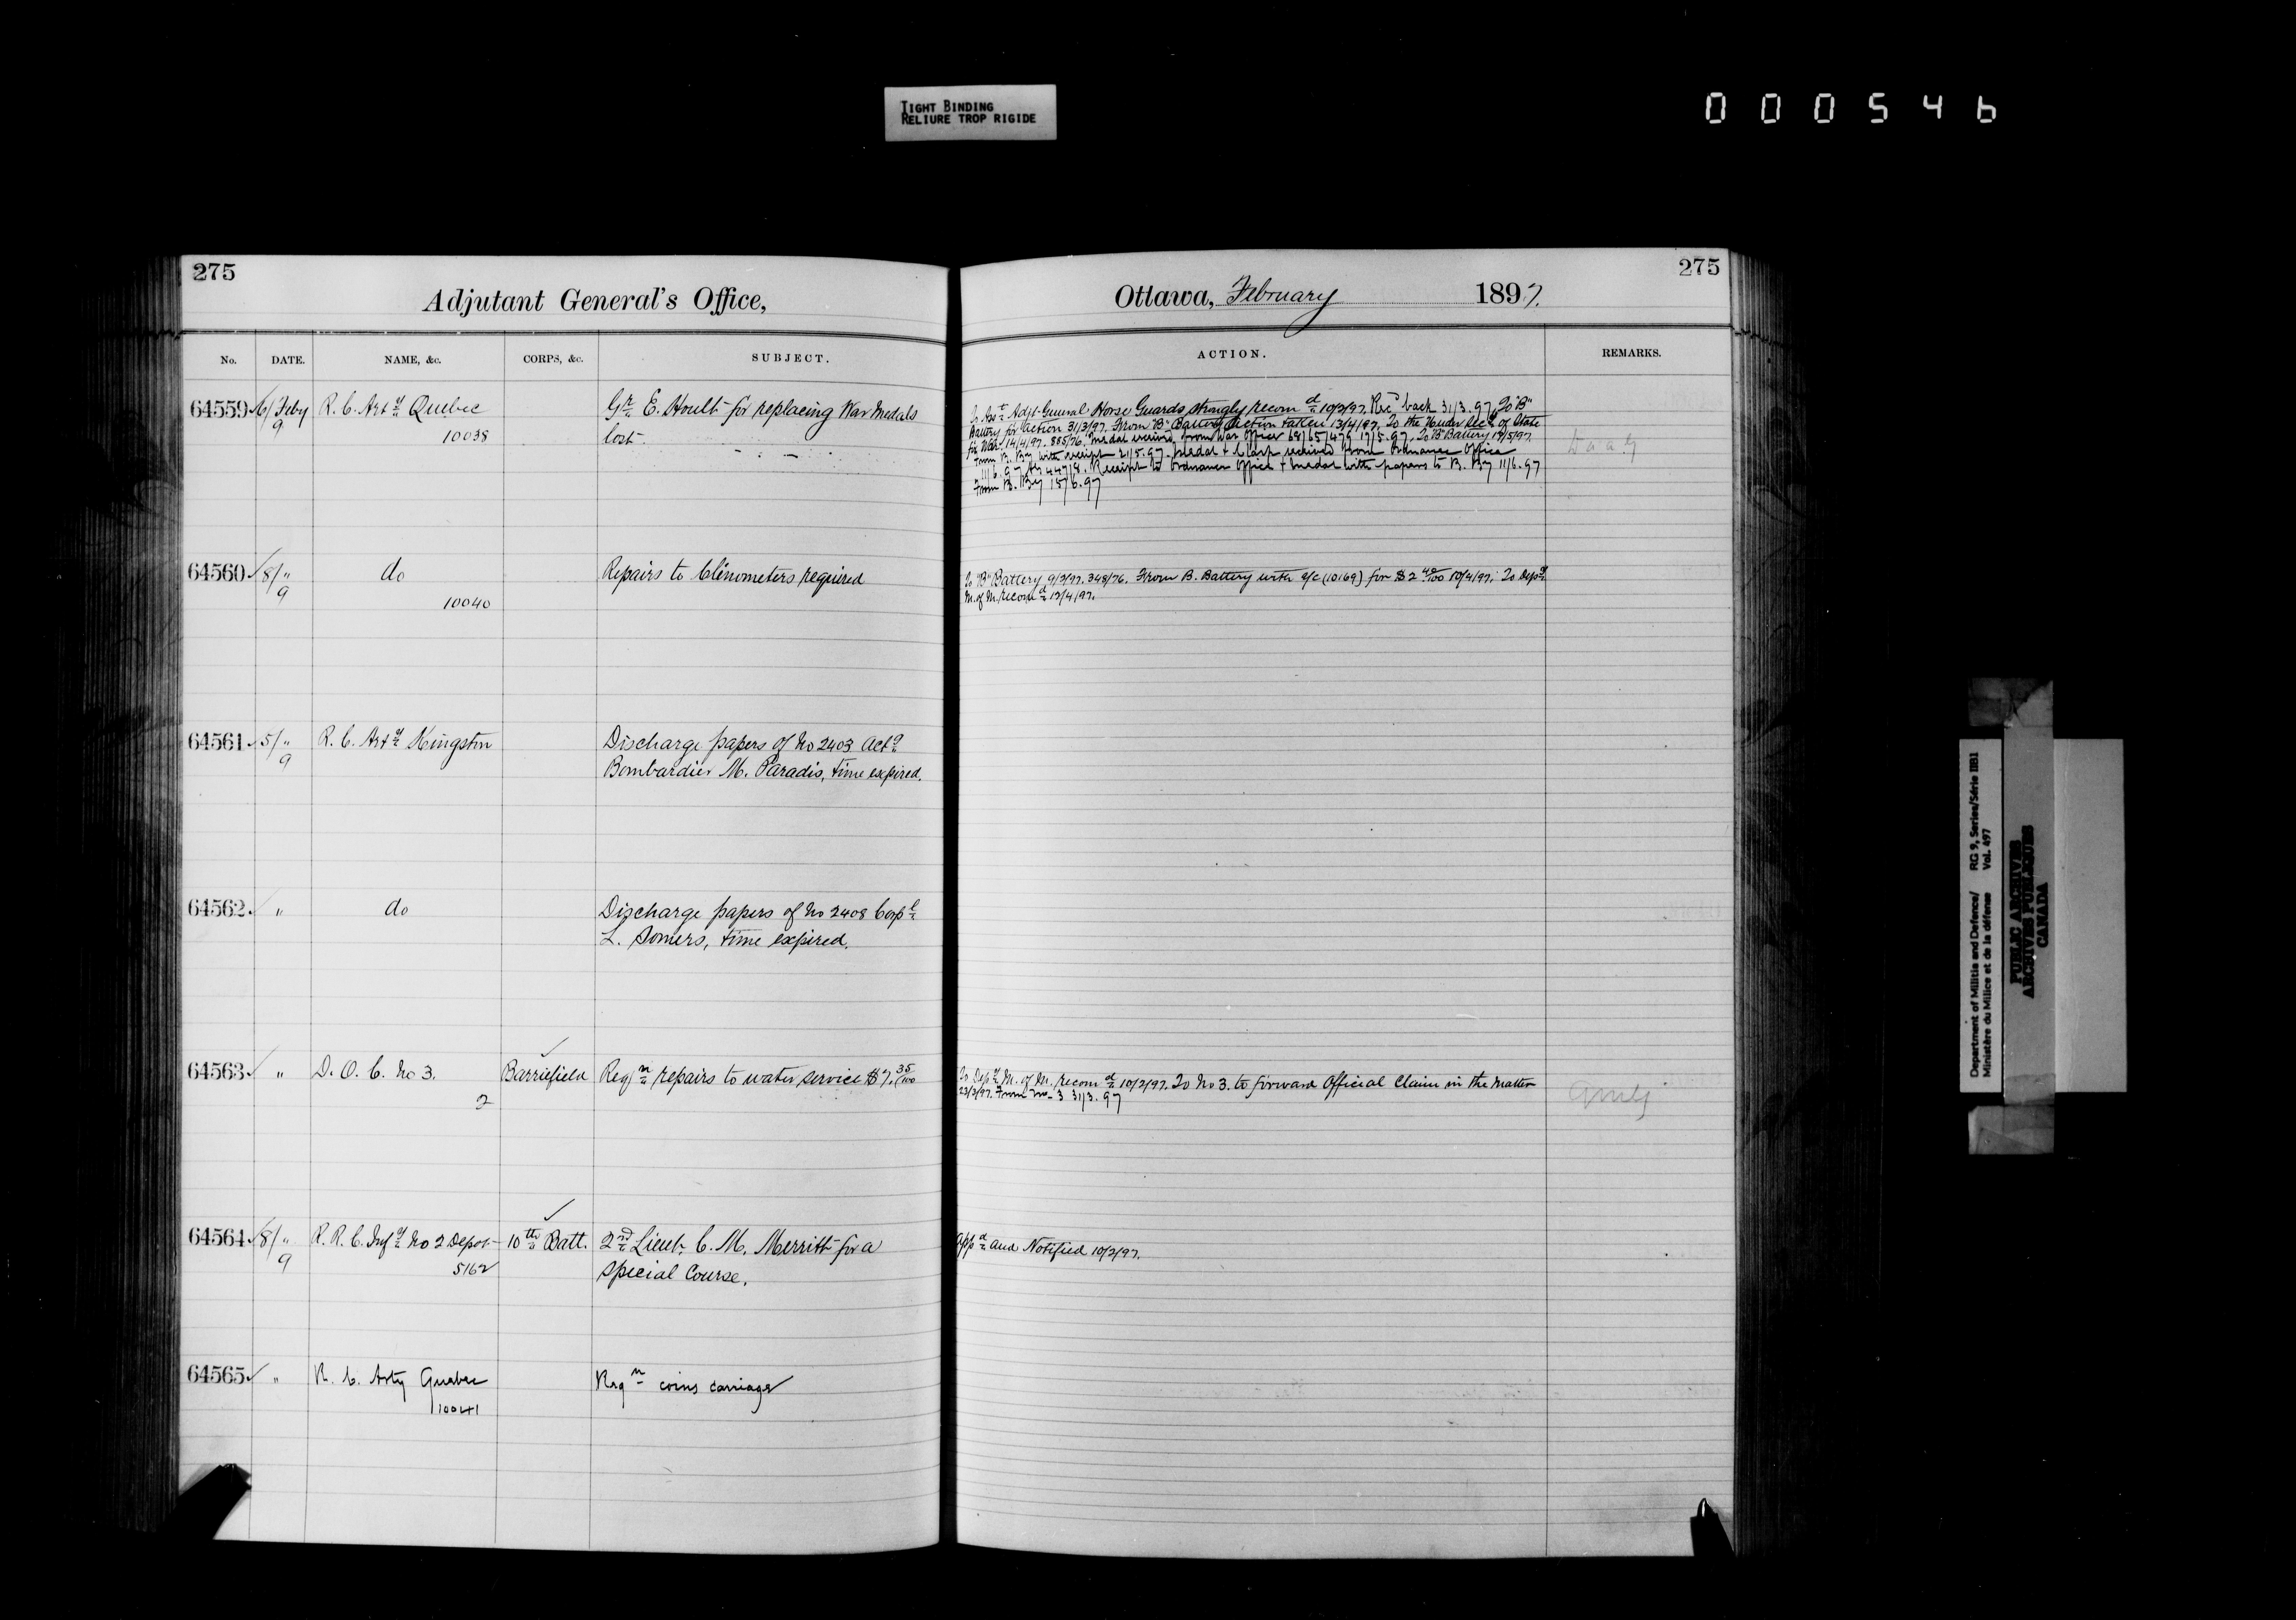 TIGHT BINDING
RELIURE TROP RIGIDE
000546
275
Adjutant General's Office,
No. DATE. NAME, &c. CORPS, &c. SUBJECT.
64559 6/9 Feby R. C. Arty Quebec Gr. E. Hoult for replacing War Medals
10038 lost
64560 8/9 " do Repairs to Clinometers required
10040
64561 5/9 " R. C. Arty Kingston Discharge papers of No 2403 Actg
Bombardier M. Paradis, time expired.
64562 " do Discharge papers of No 2408 Corpl
L. Somers, time expired.
64563 " D. O. C. No 3. Barriefield Reqn repairs to water service $7.35/100
2
64564 8/9 " R. R. C. Infy No 2 Depot 10th Batt. 2nd Lieut. C. M. Merritt for a
5162 Special Course.
64565 " R. C. Arty Quebec Reqn coins carriage
10041
275
Ottawa, February 1897.
ACTION. REMARKS.
To Asst Adjt-General Horse Guards strongly recomd 10/2/97. Recd back 31/3.97. To "B"
Battery for action 31/3/97. From "B" Battery Action taken 13/4/97. To the Under Secy of State
for War. 14/4/97. 885/76. Medal received from War Office 68/65/479 17/5.97. To "B" Battery 17/5/97.
From B. By with receipt 21/5.97. Medal & Clasp received from Ordnance Office
11/6.97 Receipt to Ordnance Office & medal with papers to B. By 11/6.97
From B. By 15/6.97
To "B" Battery 9/2/97. 348/76. From B. Battery with a/c (10169) for $2 40/100 10/4/97. To Depy
M. of M. recomd 12/4/97.
To Depy M. of M. recomd 10/2/97. To No 3. to forward Official Claim in the matter
23/3/97. From No 3 31/3.97
Appd and Notified 10/2/97.
Department of Militia and Defence/ RG 9, Series/Série IIB1
Ministère du Milice et de la défense Vol. 497
PUBLIC ARCHIVES
ARCHIVES PUBLIQUES
CANADA